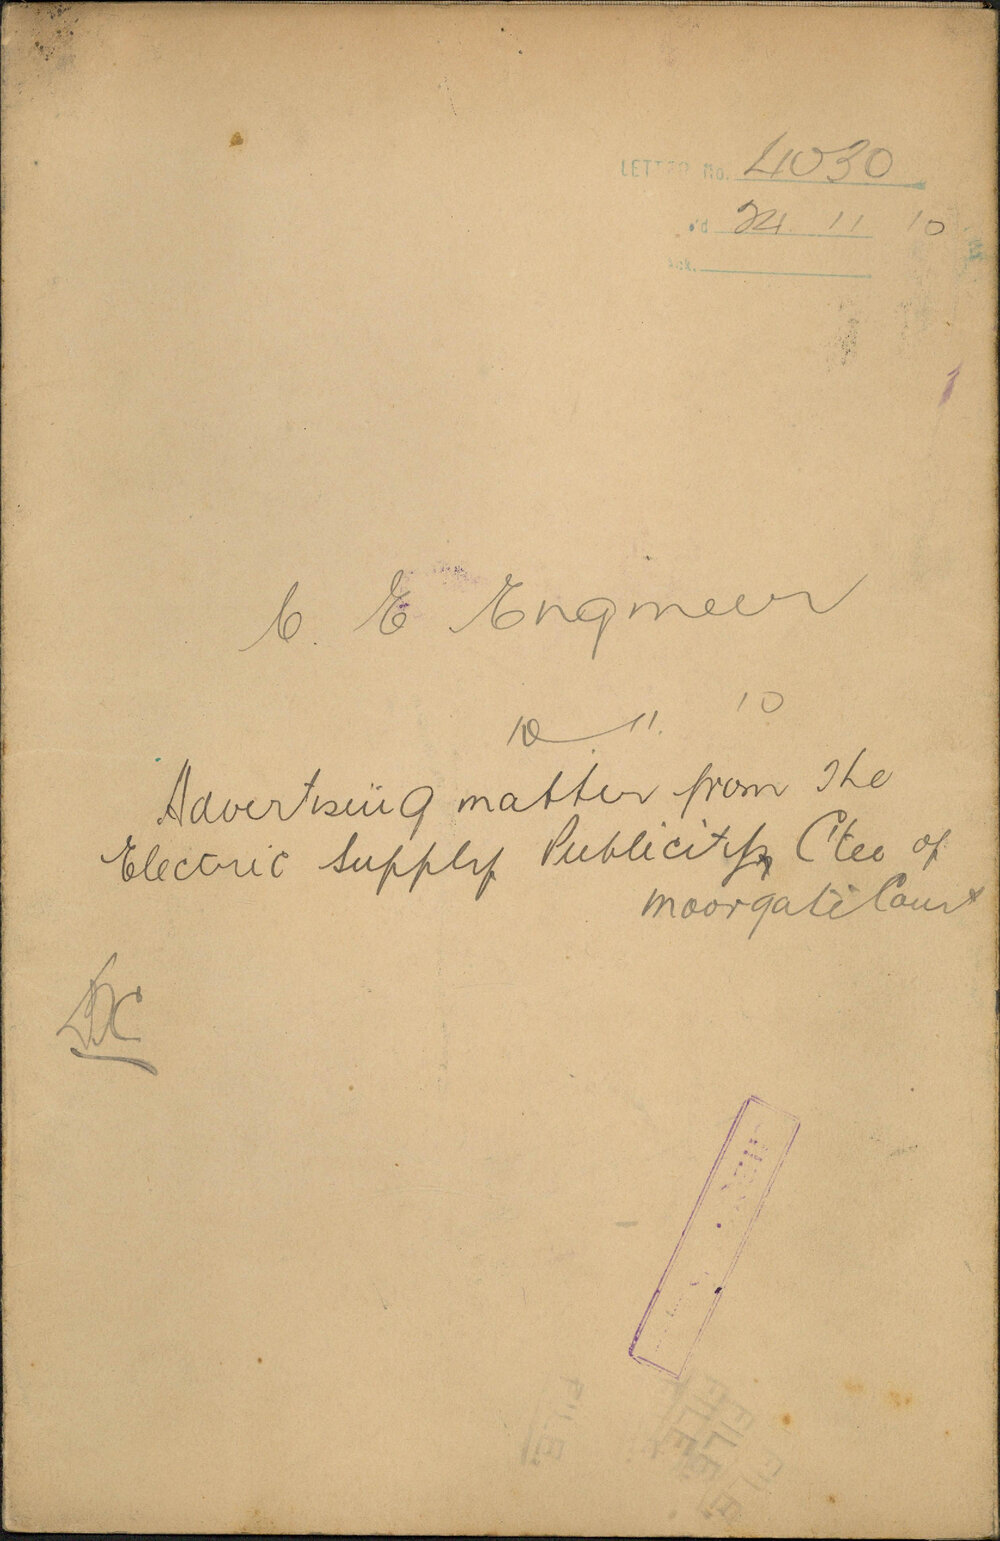 LETTER No. 4030
'd 24. 11 10
Ack.
C. E Engineer
10 11. 10
Advertising matter from the
Electric Supply Publicity C'tee of
Moorgate Court
FILE
FILE
FILE
FILE
FILE